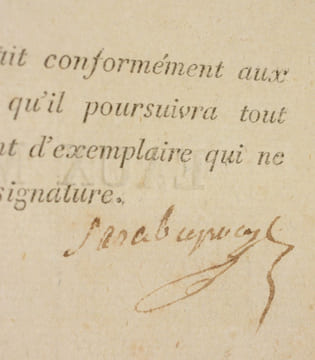 ait conformément aux
qu'il poursuivra tout
nt d'exemplaire qui ne
signature.